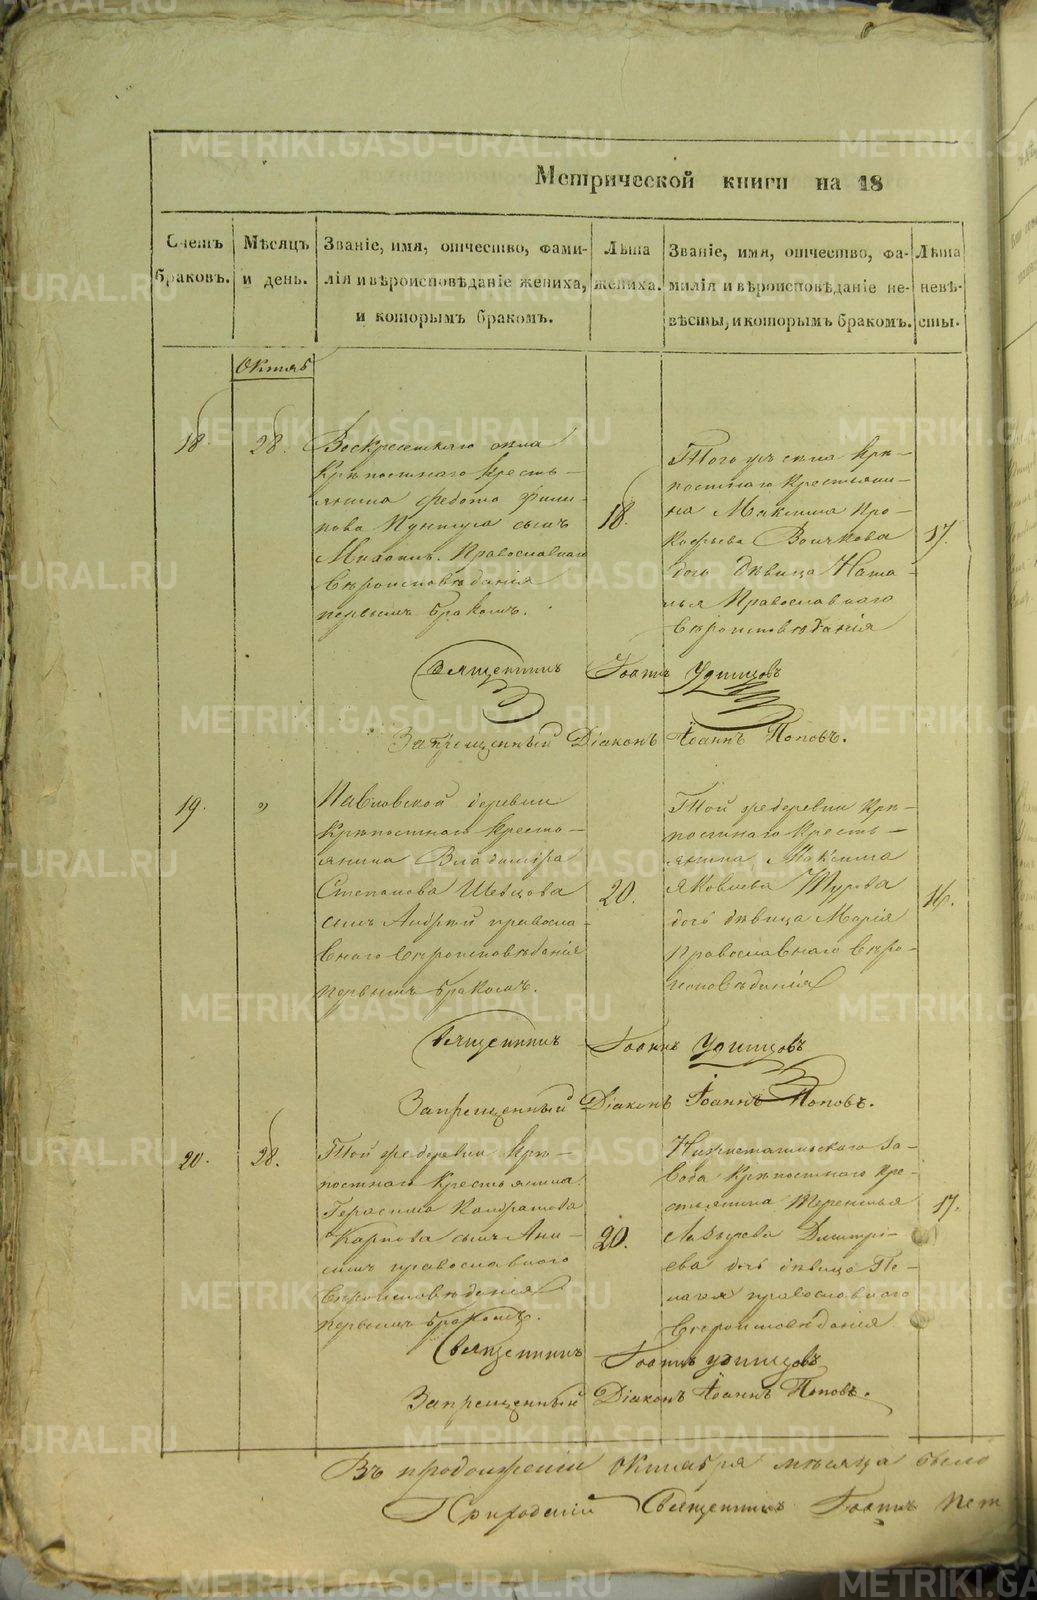 Метрической книги на 18
Счетъ браковъ.
Мѣсяцъ и день.
Званіе, имя, отчество, фами-
лія и вѣроисповѣданіе жениха,
и которымъ бракомъ.
Лѣта жениха.
Званіе, имя, отчество, фа-
милія и вѣроисповѣданіе не-
вѣсты, и которымъ бракомъ.
Лѣта невѣ-
сты.
Октяб
18
28.
Воскресенскаго села
Крѣпостнаго кресть-
янина Федота Фили-
пова сынъ
Православнаго
вѣроисповѣданія
первымъ бракомъ.
18.
Того же села крѣ-
постнаго крестьяни-
на Максима Про-
кофьева Волчкова
дочь дѣвица Ната-
лья Православнаго
вѣроисповѣданія
17.
Священникъ Іоаннъ Удинцовъ
Запрещенный Діаконъ Іоаннъ Поповъ.
19.
"
Павловской деревни
Крѣпостнаго кресть-
янина Владиміра
Степанова Шевцова
сынъ Андрей правосла-
внаго вѣроисповѣданія
первымъ бракомъ.
20.
Той же деревни крѣ-
постнаго кресть-
янина Максима
Яковлева
дочь дѣвица Марія
Православнаго вѣро-
исповѣданія
16.
Священникъ Іоаннъ Удинцовъ
Запрещенный Діаконъ Іоаннъ Поповъ.
20.
28.
Той же деревни крѣ-
постнаго крестьянина
Герасима Кондратова
Карпова сынъ Ани-
симъ православнаго
вѣроисповѣданія
первымъ бракомъ.
20.
Нижнетагильскаго за-
вода крѣпостнаго кре-
стьянина Терентья
Дмитрі-
ева дочь дѣвица Пе-
лагея православнаго
вѣроисповѣданія
17.
Священникъ Іоаннъ Удинцовъ
Запрещенный Діаконъ Іоаннъ Поповъ.
Въ продолженіи Октября мѣсяца было
Священникъ Іоаннъ
METRIKI.GASO-URAL.RU